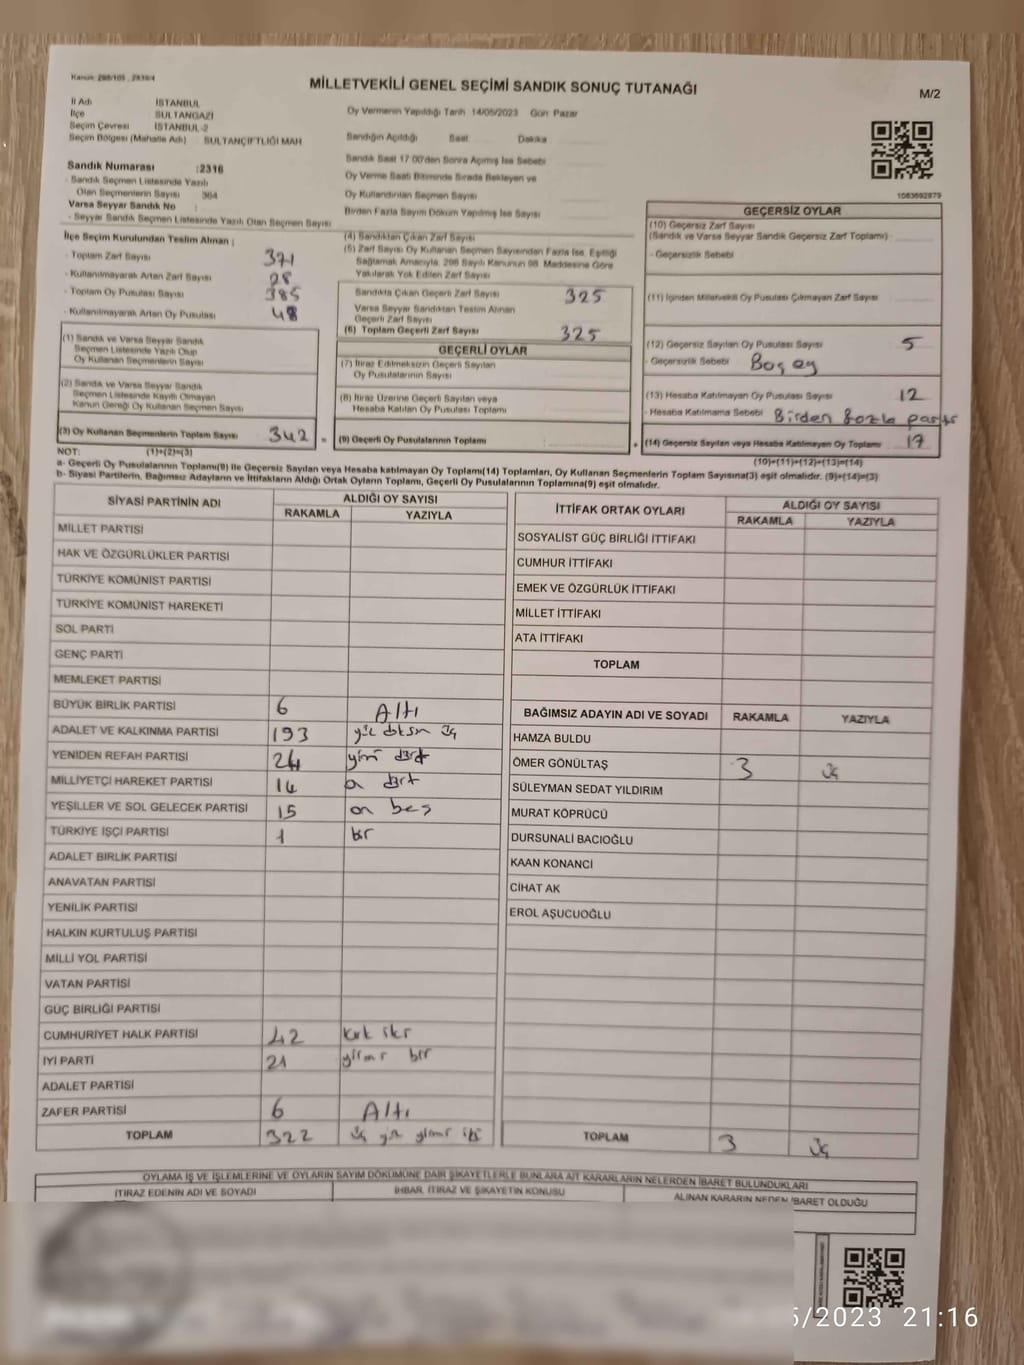 Kanun: 298/105 , 2839/4
MİLLETVEKİLİ GENEL SEÇİMİ SANDIK SONUÇ TUTANAĞI
M/2
İl Adı İSTANBUL
İlçe SULTANGAZİ
Seçim Çevresi İSTANBUL-2
Seçim Bölgesi (Mahalle Adı) SULTANÇİFTLİĞİ MAH
Oy Vermenin Yapıldığı Tarih 14/05/2023 Gün Pazar
Sandığın Açıldığı Saat Dakika
Sandık Saat 17 00'den Sonra Açılmış İse Sebebi
Oy Verme Saati Bitiminde Sırada Bekleyen ve
Oy Kullandırılan Seçmen Sayısı
Birden Fazla Sayım Döküm Yapılmış İse Sayısı
Sandık Numarası :2316
- Sandık Seçmen Listesinde Yazılı
Olan Seçmenlerin Sayısı 364
Varsa Seyyar Sandık No :
- Seyyar Sandık Seçmen Listesinde Yazılı Olan Seçmen Sayısı
İlçe Seçim Kurulundan Teslim Alınan ;
- Toplam Zarf Sayısı 371
- Kullanılmayarak Artan Zarf Sayısı 28
- Toplam Oy Pusulası Sayısı 385
- Kullanılmayarak Artan Oy Pusulası 48
(1) Sandık ve Varsa Seyyar Sandık
Seçmen Listesinde Yazılı Olup
Oy Kullanan Seçmenlerin Sayısı
(2) Sandık ve Varsa Seyyar Sandık
Seçmen Listesinde Kayıtlı Olmayan
Kanun Gereği Oy Kullanan Seçmen Sayısı
(3) Oy Kullanan Seçmenlerin Toplam Sayısı 342 =
(4) Sandıktan Çıkan Zarf Sayısı
(5) Zarf Sayısı Oy Kullanan Seçmen Sayısından Fazla İse, Eşitliği
Sağlamak Amacıyla, 298 Sayılı Kanunun 98. Maddesine Göre
Yakılarak Yok Edilen Zarf Sayısı
Sandıkta Çıkan Geçerli Zarf Sayısı 325
Varsa Seyyar Sandıktan Teslim Alınan
Geçerli Zarf Sayısı
(6) Toplam Geçerli Zarf Sayısı 325
GEÇERLİ OYLAR
(7) İtiraz Edilmeksizin Geçerli Sayılan
Oy Pusulalarının Sayısı
(8) İtiraz Üzerine Geçerli Sayılan veya
Hesaba Katılan Oy Pusulası Toplamı
(9) Geçerli Oy Pusulalarının Toplamı +
1063692979
GEÇERSİZ OYLAR
(10) Geçersiz Zarf Sayısı
(Sandık ve Varsa Seyyar Sandık Geçersiz Zarf Toplamı)
- Geçersizlik Sebebi
(11) İçinden Milletvekili Oy Pusulası Çıkmayan Zarf Sayısı
(12) Geçersiz Sayılan Oy Pusulası Sayısı 5
- Geçersizlik Sebebi Boş oy
(13) Hesaba Katılmayan Oy Pusulası Sayısı 12
- Hesaba Katılmama Sebebi Birden fazla parti
(14) Geçersiz Sayılan veya Hesaba Katılmayan Oy Toplamı 17
NOT: (1)+(2)=(3) (10)+(11)+(12)+(13)=(14)
a- Geçerli Oy Pusulalarının Toplamı(9) ile Geçersiz Sayılan veya Hesaba katılmayan Oy Toplamı(14) Toplamları, Oy Kullanan Seçmenlerin Toplam Sayısına(3) eşit olmalıdır. (9)+(14)=(3)
b- Siyasi Partilerin, Bağımsız Adayların ve İttifakların Aldığı Ortak Oyların Toplamı, Geçerli Oy Pusulalarının Toplamına(9) eşit olmalıdır.
SİYASİ PARTİNİN ADI ALDIĞI OY SAYISI
RAKAMLA YAZIYLA
MİLLET PARTİSİ
HAK VE ÖZGÜRLÜKLER PARTİSİ
TÜRKİYE KOMÜNİST PARTİSİ
TÜRKİYE KOMÜNİST HAREKETİ
SOL PARTİ
GENÇ PARTİ
MEMLEKET PARTİSİ
BÜYÜK BİRLİK PARTİSİ 6 Altı
ADALET VE KALKINMA PARTİSİ 193 yüz doksn üç
YENİDEN REFAH PARTİSİ 24 yirmi dört
MİLLİYETÇİ HAREKET PARTİSİ 14 on dört
YEŞİLLER VE SOL GELECEK PARTİSİ 15 on beş
TÜRKİYE İŞÇİ PARTİSİ 1 bir
ADALET BİRLİK PARTİSİ
ANAVATAN PARTİSİ
YENİLİK PARTİSİ
HALKIN KURTULUŞ PARTİSİ
MİLLİ YOL PARTİSİ
VATAN PARTİSİ
GÜÇ BİRLİĞİ PARTİSİ
CUMHURİYET HALK PARTİSİ 42 kırk iki
İYİ PARTİ 21 yirmi bir
ADALET PARTİSİ
ZAFER PARTİSİ 6 Altı
TOPLAM 322 üç yüz yirmi iki
İTTİFAK ORTAK OYLARI ALDIĞI OY SAYISI
RAKAMLA YAZIYLA
SOSYALİST GÜÇ BİRLİĞİ İTTİFAKI
CUMHUR İTTİFAKI
EMEK VE ÖZGÜRLÜK İTTİFAKI
MİLLET İTTİFAKI
ATA İTTİFAKI
TOPLAM
BAĞIMSIZ ADAYIN ADI VE SOYADI RAKAMLA YAZIYLA
HAMZA BULDU
ÖMER GÖNÜLTAŞ 3 üç
SÜLEYMAN SEDAT YILDIRIM
MURAT KÖPRÜCÜ
DURSUNALİ BACIOĞLU
KAAN KONANCI
CİHAT AK
EROL AŞUCUOĞLU
TOPLAM 3 üç
OYLAMA İŞ VE İŞLEMLERİNE VE OYLARIN SAYIM DÖKÜMÜNE DAİR ŞİKAYETLERLE BUNLARA AİT KARARLARIN NELERDEN İBARET BULUNDUKLARI
İTİRAZ EDENİN ADI VE SOYADI İHBAR, İTİRAZ VE ŞİKAYETİN KONUSU ALINAN KARARIN NEDEN İBARET OLDUĞU
5/2023 21:16